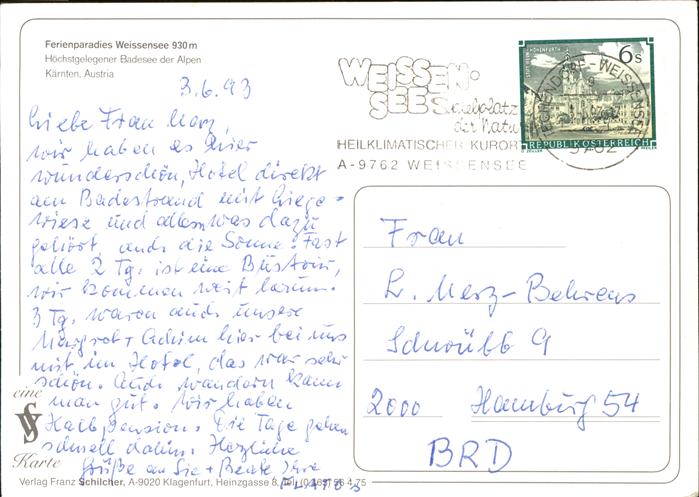 Ferienparadies Weissensee 930 m
Höchstgelegener Badesee der Alpen
Kärnten, Austria
3.6.93
Liebe Frau Merz,
wir haben es hier
wunderschön, Hotel direkt
am Badestrand mit Liege-
wiese und allem was dazu
gehört, auch die Sonne. Fast
alle 2 Tg. ist eine Bustour,
wir kommen weit herum.
3 Tg. waren auch unsere
Margret + Achim hier bei uns
mit im Hotel, das war sehr
schön. Auch wandern kann
man gut. Wir haben
Halbpension. Die Tage gehen
schnell dahin. Herzliche
Grüße an Sie + Beate Ihre
eine
VS
Karte
Verlag Franz Schilcher, A-9020 Klagenfurt, Heinzgasse 8, Tel.
WEISSEN-
SEE Spielplatz
der Natu
HEILKLIMATISCHER KURORT
A-9762 WEISSENSEE
6 S
REPUBLIK ÖSTERREICH
WEISSENSEE
9762
Frau
L. Merz-Behrens
2000 Hamburg 54
BRD